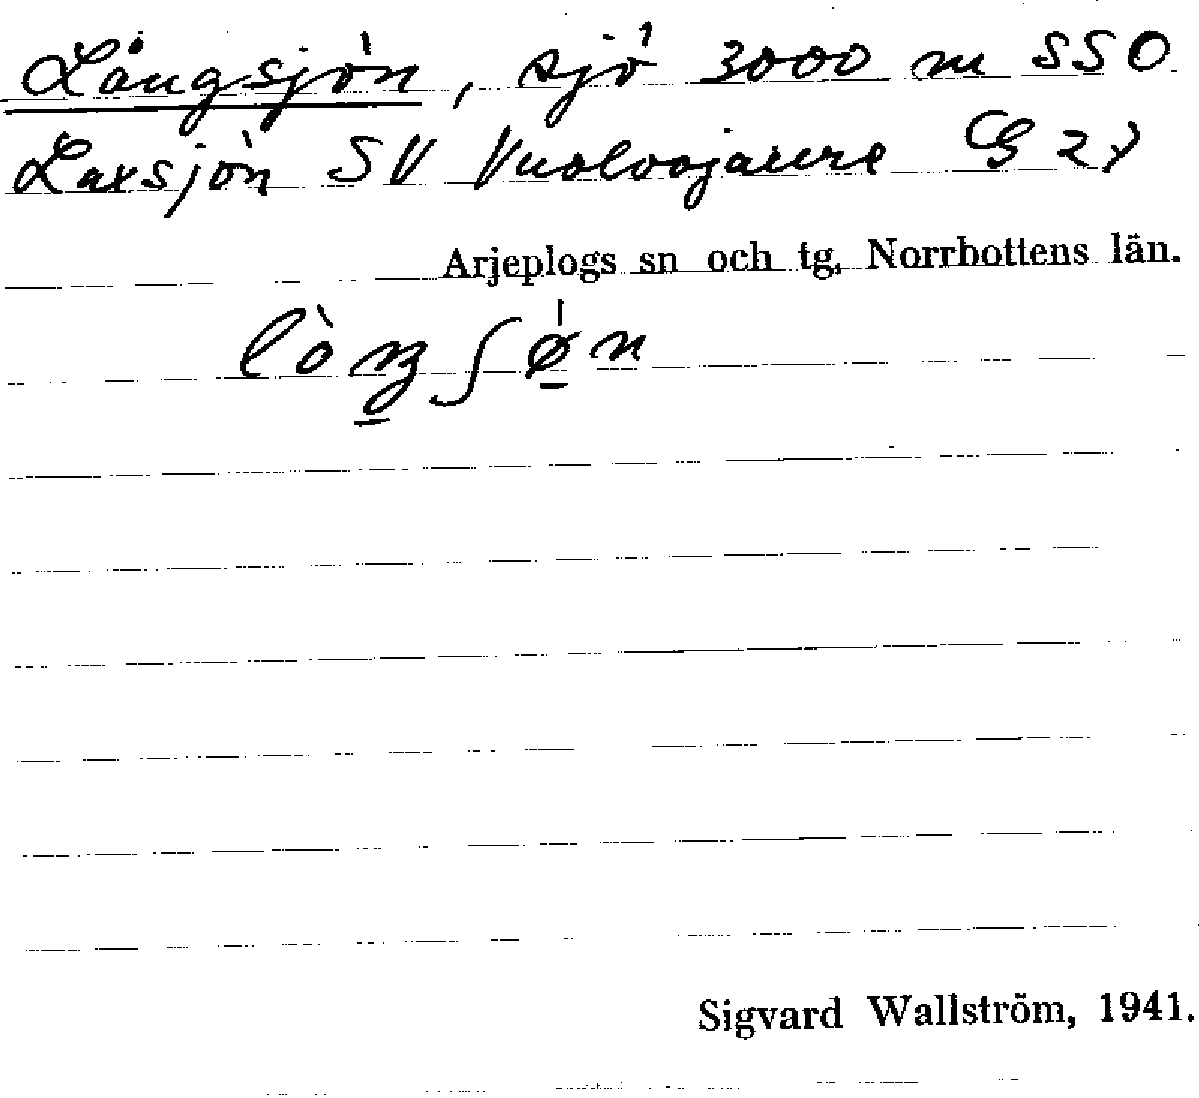 Långsjön, sjö 3000 m SSO
Laxsjön SV Vuolvojaure G 27
Arjeplogs sn och tg, Norrbottens län.
lòŋʃø̀n
Sigvard Wallström, 1941.